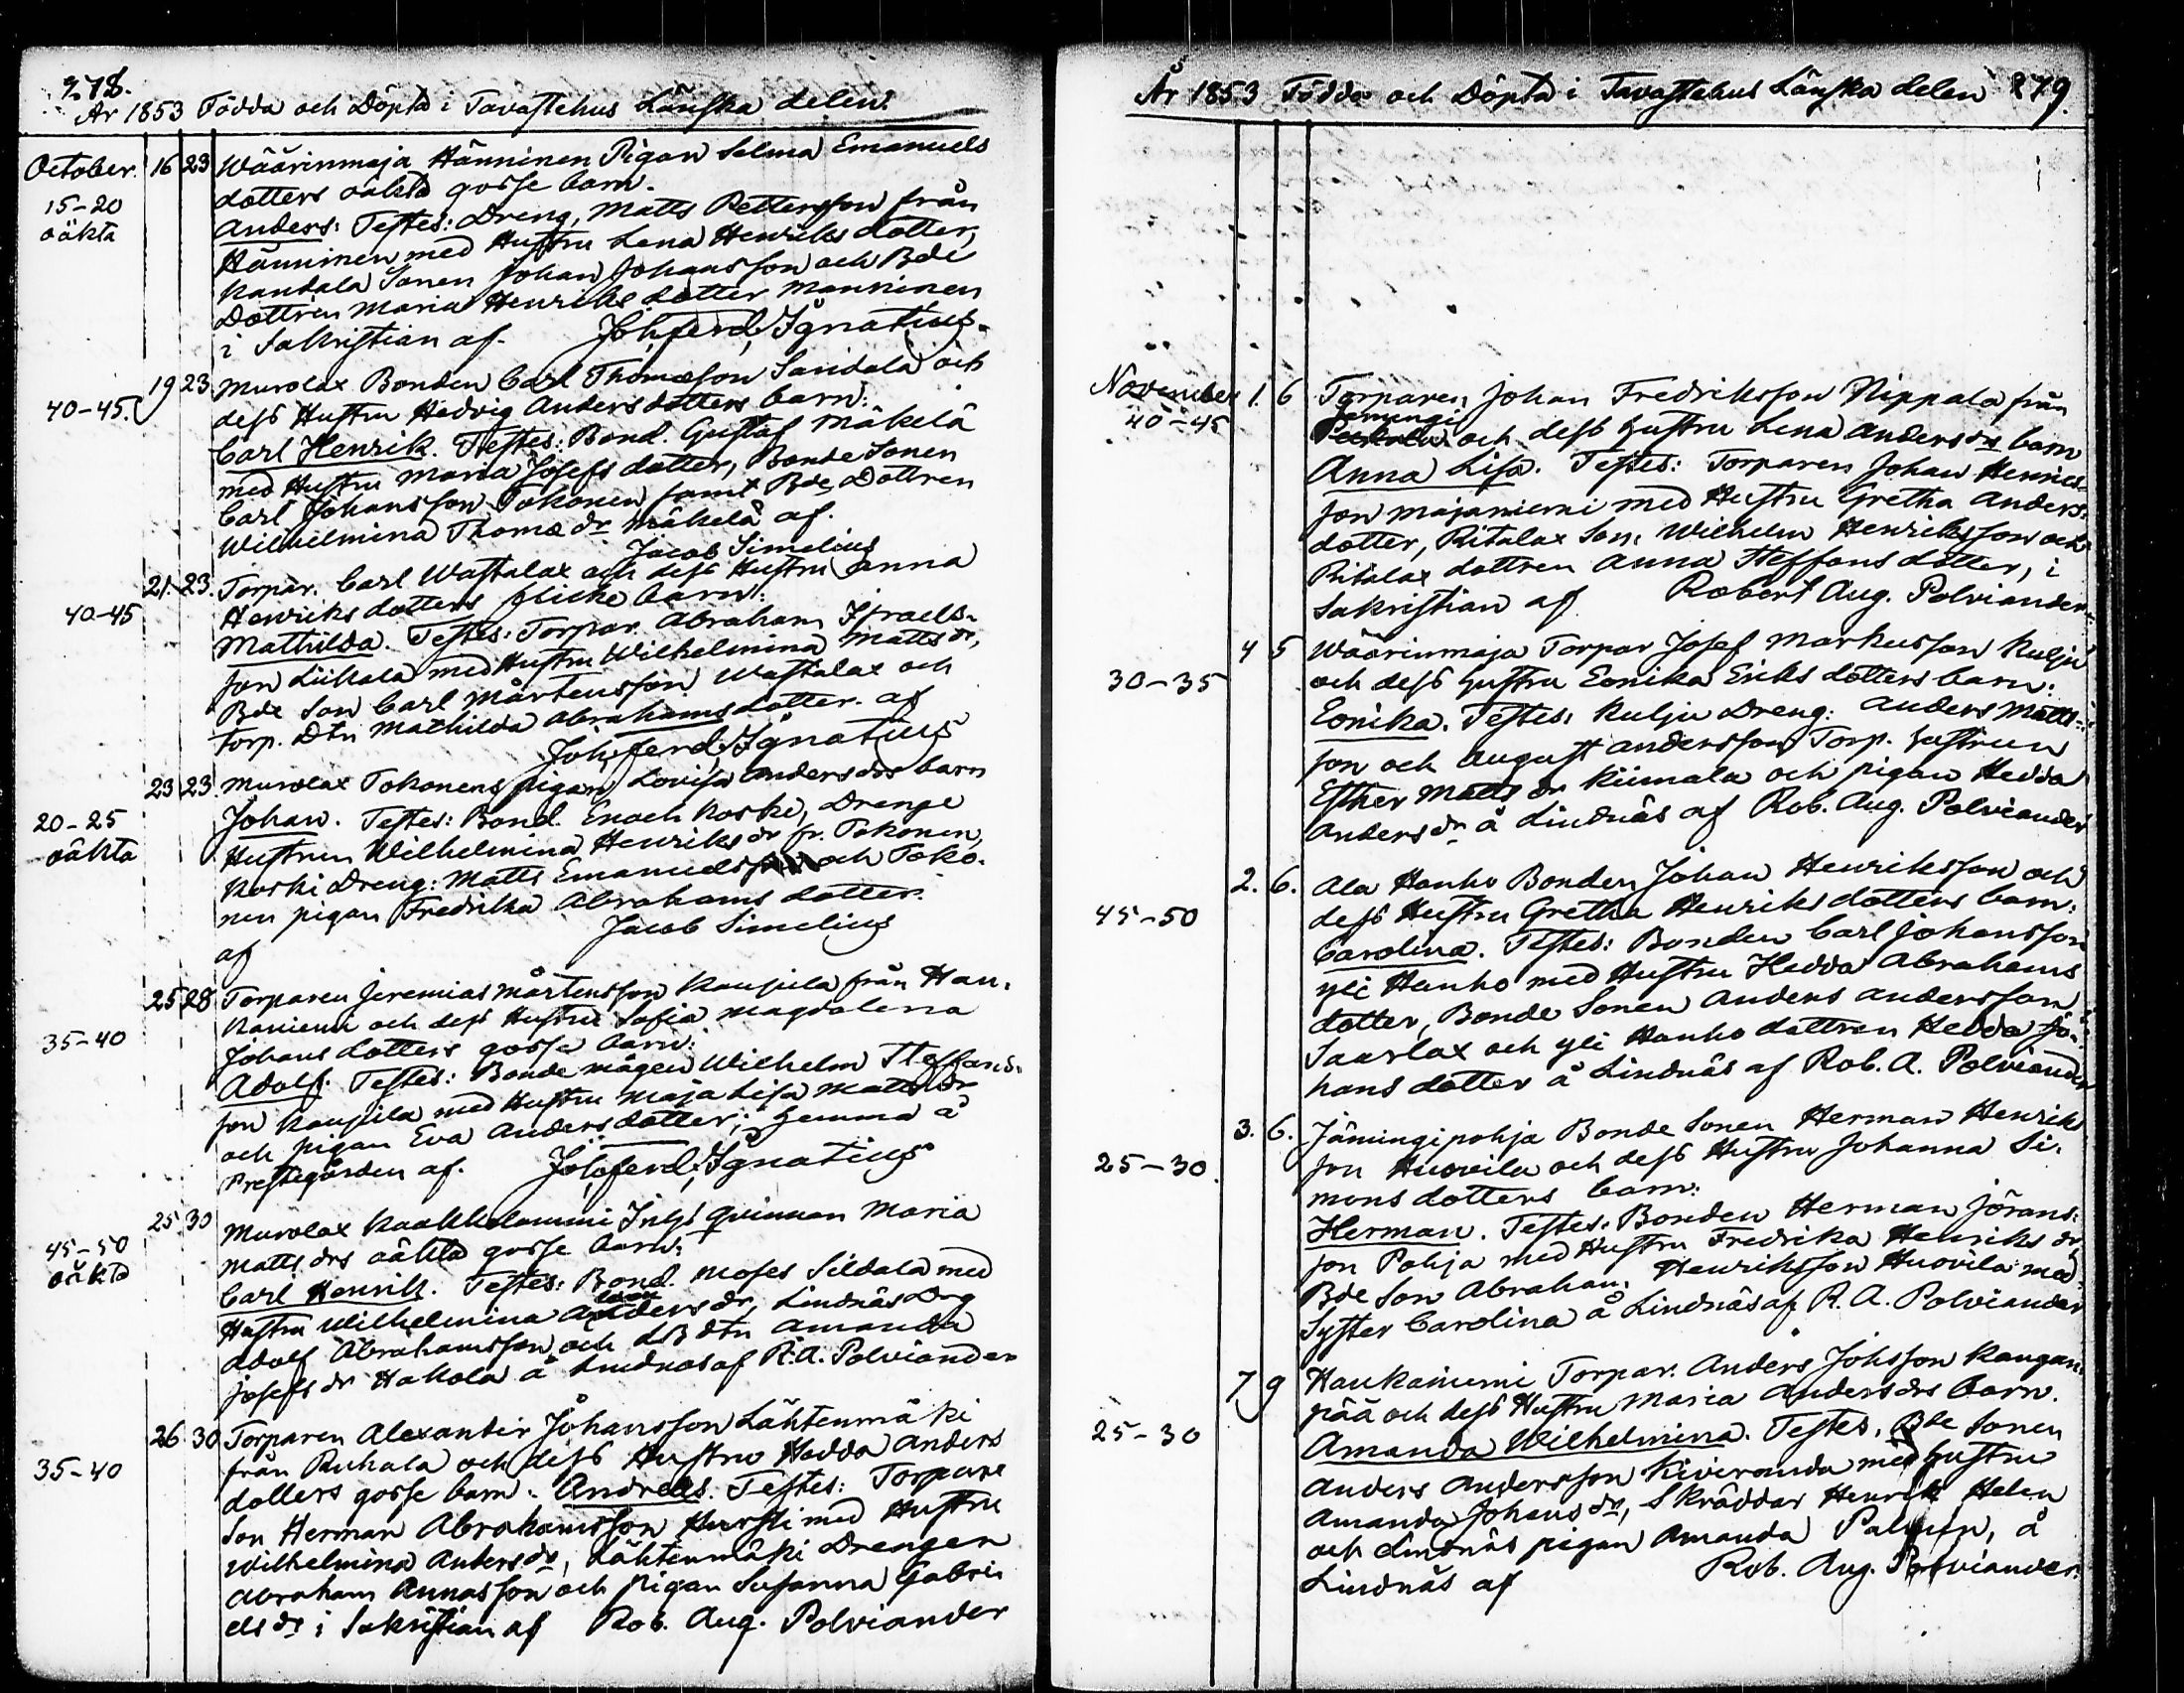 278.
År 1853 Födda och Döpta i Tavastehus Länska delen.
October. 16 23 Wäärinmaja Hänninen Pigan Selma Emanuels
dotters oäkta gosse barn.
15-20
oäkta
Anders: Testes: Dreng, Matts Pettersson från
Hänninen med Hustru Lena Henriks dotter,
Kandala Sonen Johan Johansson och Bde
Dottren Maria Henriks dotter Manninen
i Sakristian af. Joh, ferd, Ignatius.
19 23 Murolax Bonden Carl Thomæson Saridala och
40-45. dess Hustru Hedvig Anders dotters barn:
Carl Henrik. Testes: Bond. Gustaf Mäkelä
med Hustru Maria Josefs dotter, Bonde Sonen
Carl Johansson Tokonen samt Bde Dottren
Wilhelmina Thomæ dr Mäkelä af.
Jacob Simelius
21. 23. Torpar. Carl Wastalax och dess Hustru Anna
40-45 Henriks dotters flicke barn:
Mathilda. Testes: Torpar. Abraham Israels-
son Liikala med Hustru Wilhelmina Matts dr,
Bde Son Carl Mårtensson Wastalax och
Torp. Dtn Mathilda Abrahams dotter. af
Joh, ferd, Ignatius
23 23. Murolax Tokonens pigan Lovisa Anders drs barn
20-25
oäkta
Johan. Testes: Bond. Enoch Koski, Drenge
Hustrun Wilhelmina Henriks dr fr. Tokonen,
Koski Dreng: Matts Emanuelsson och Toko-
nen pigan Fredrika Abrahams dotter.
af Jacob Simelius
25 28 Torparen Jeremias Mårtensson Kaupila från Hau-
kaniemi och dess Hustru Sofia Magdalena
35-40 Johans dotters gosse barn:
Adolf. Testes: Bonde mågen Wilhelm Steffans-
son Kaupila med Hustru Maja Lisa Matts dr
och pigan Eva Anders dotter; hemma å
Prestegården af. Joh, ferd, Ignatius
25 30 Murolax Kaakkolammi Inhys qvinnan Maria
45-50
oäkta
Matts drs oäkta gosse barn:
Carl Henrik. Testes: Bond. Moses Sildala med
Hustru Wilhelmina Anders dr, Lindnäs Drg
Adolf Abrahamsson och LB dtn Amanda
Josefs dr Hakola å Lindnäs af R. A. Polviander
26 30 Torparen Alexander Johansson Lähtenmäki
från Ruhala och dess Hustru Hedda Anders
35-40 dotters gosse barn. Andreas. Testes: Torpare
Son Herman Abrahamsson Hursti med Hustru
Wilhelmina Anders dr, Lähtenmäki Drengen
Abraham Annasson och pigan Susanna Gabri-
els dr i Sakristian af Rob. Aug. Polviander
År 1853 Födda och Döpta i Tavastehus Länska delen 279.
November 1. 6 Torparen Johan Fredriksson Nippala från
40-45 Jämingi och dess hustru Lena Anders drs barn
Anna Lisa. Testes: Torparen Johan Henriks-
son Majaniemi med Hustru Gretha Anders-
dotter, Ritalax Son. Wilhelm Henriksson och
Ritalax dottren Anna Steffans dotter, i
Sakristian af Robert Aug. Polviander
4 5 Wäärinmaja Torpar Josef Markusson Kulju
30-35 och dess hustru Eonika Eriks dotters barn:
Eonika. Testes: Kulju Dreng: Anders Matts-
son och August Andersson Torp. hustrun
Esther Matts dr Kiimala och pigan Hedda
Anders dr å Lindnäs af Rob. Aug. Polviander
2. 6. Ala Hanho Bonden Johan Henriksson och
45-50 dess Hustru Gretha Henriks dotters barn:
Carolina. Testes: Bonden Carl Johansson
yli Hanho med Hustru Hedda Abrahams
dotter, Bonde Sonen Anders Andersson
Saarlax och yli Hanho dottren Hedda Jo-
hans dotter å Lindnäs af Rob. A. Polviander
3. 6. Jämingipohja Bonde Sonen Herman Henriks
25-30. son Huovila och dess Hustru Johanna Si-
mons dotters barn:
Herman. Testes: Bonden Herman Jörans-
son Pohja med Hustru Fredrika Henriks dr
Bde Son Abraham Henriksson Huovila med
Syster Carolina å Lindnäs af R. A. Polviander
7 9 Haukaniemi Torpar. Anders Johsson Kangan-
pää och dess Hustru Maria Anders drs barn.
25-30 Amanda Wilhelmina. Testes, Bde Sonen
Anders Andersson Kiviranda med hustru
Amanda Johans dr, Skräddar Henrik Helen
och Lindnäs pigan Amanda Palmin, å
Lindnäs af Rob. Aug. Polviander.